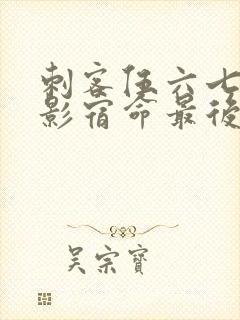 刺客伍六七
影宿命最後
吴宗寶